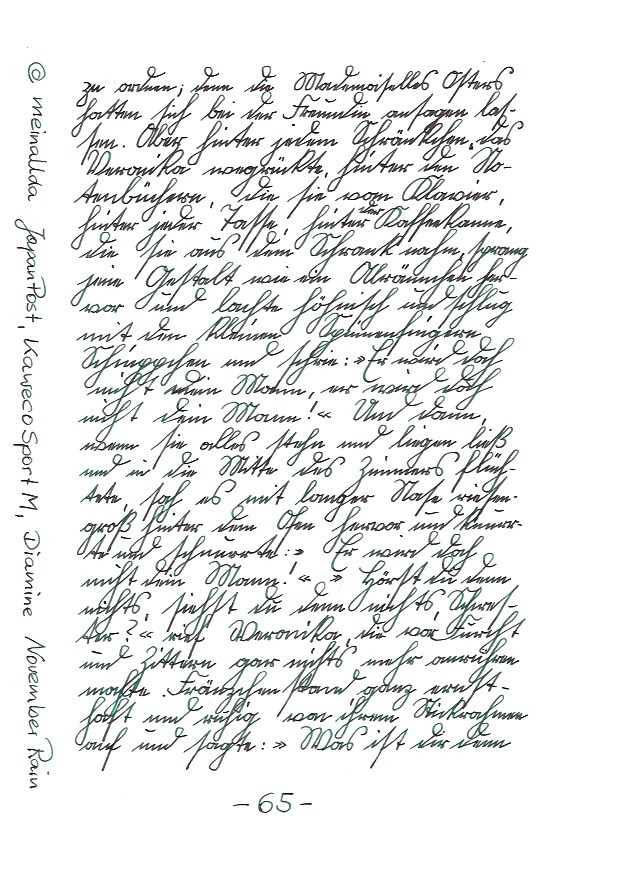 zu ordnen; denn die Mademoiselles Osters
hatten sich bei der Freundin ansagen las-
sen. Aber hinter jedem Schränkchen, das
Veronika wegrückte, hinter den No-
tenbüchern, die sie vom Klavier,
hinter jeder Tasse, hinter der Kaffeekanne,
die sie aus dem Schrank nahm, sprang
jene Gestalt wie ein Alräunchen her-
vor und lachte höhnisch und schlug
mit den kleinen Spinnenfingern
Schnippchen und schrie: »Er wird doch
nicht dein Mann, er wird doch
nicht dein Mann!« Und dann,
wenn sie alles stehn und liegen ließ
und in die Mitte des Zimmers flüch-
tete, sah es mit langer Nase riesen-
groß hinter dem Ofen hervor und knurr-
te und schnurrte: » Er wird doch
nicht dein Mann! « » Hörst du denn
nichts, siehst du denn nichts, Schwes-
ter? « rief Veronika, die vor Furcht
und Zittern gar nichts mehr anrühren
mochte. Fränzchen stand ganz ernst-
haft und ruhig von ihrem Stickrahmen
auf und sagte: » Was ist dir denn
- 65 -
© meinallda JapanPost, Kaweco Sport M, Diamine November Rain